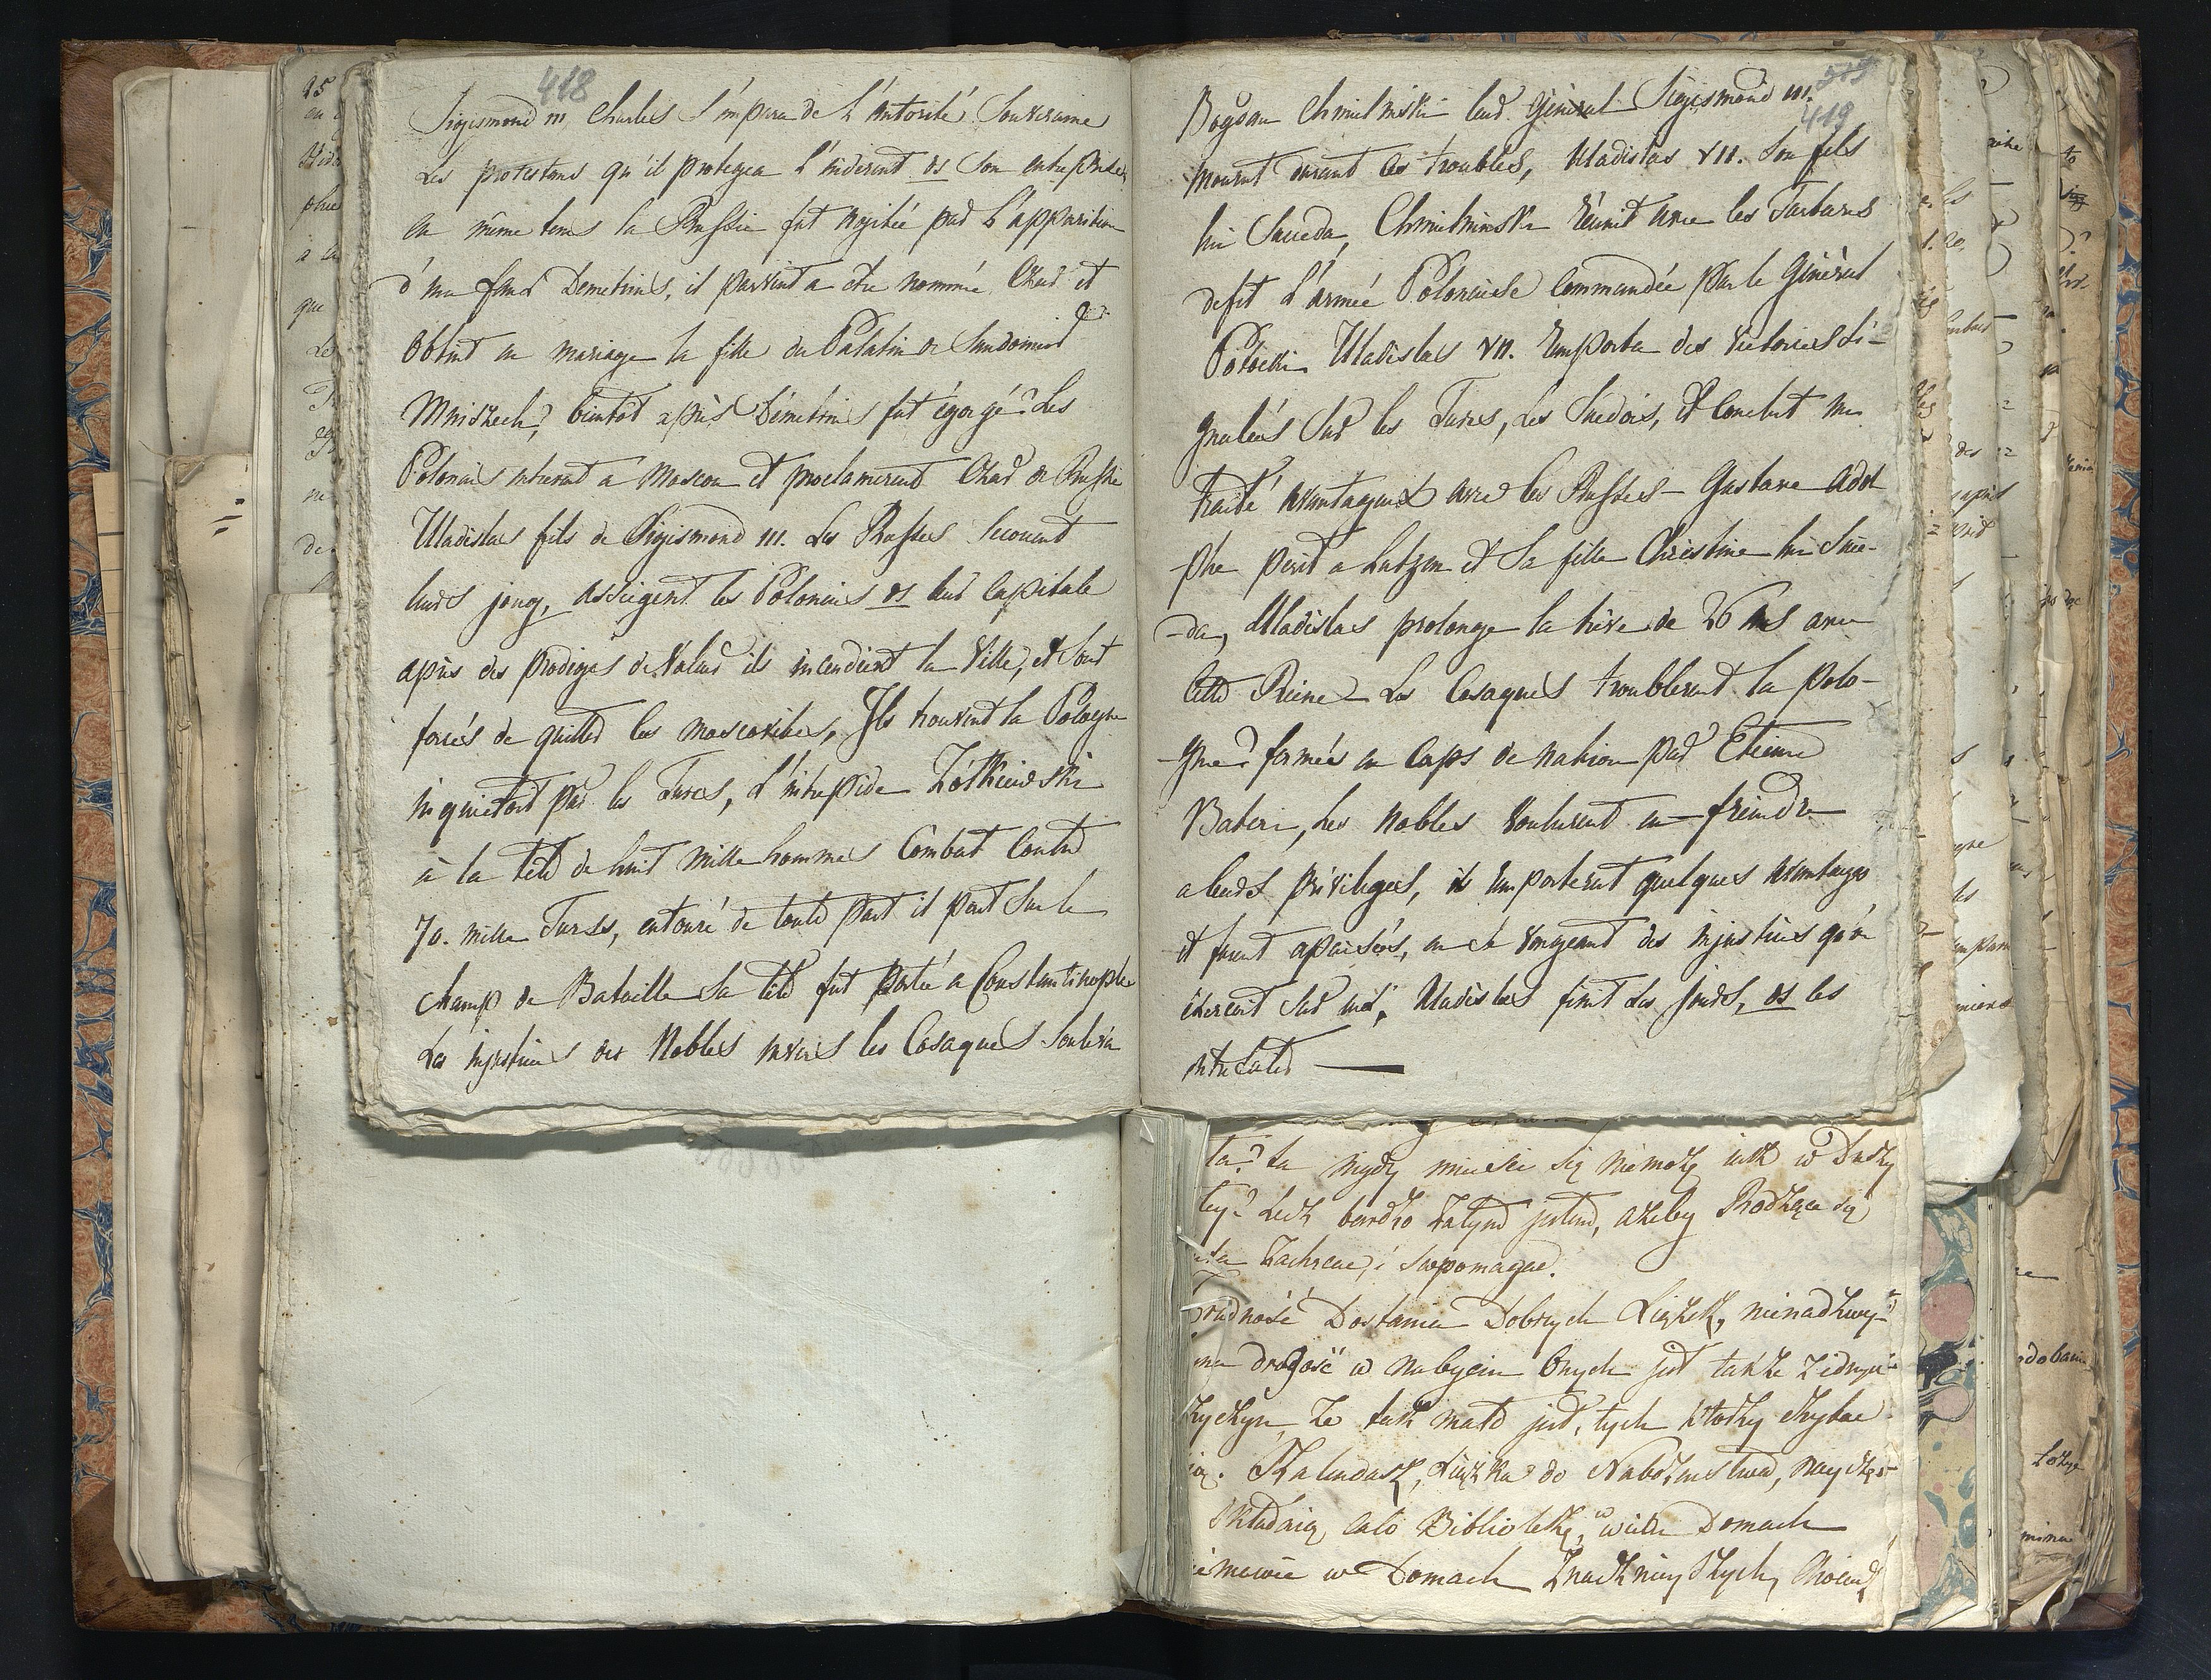 418
Sigismond III, Charles s'empara de l'autorité Souveraine
Les protestans qu'il protegea l'aiderent ds son entreprise,
en même tems la Russie fut agitée par l'apparition
d'un faux Demetrius, il parvint a être nommé Czar et
obtint en mariage la fille du Palatin de Sandomir
Mniszech, bientôt après Démétrius fut égorgé. Les
Polonais entrerent a Moscou et proclamerent Czar de Russie
Uladislas fils de Sigismond III. Les Russes secouent
leurs joug, assiegent les Polonais ds leur Capitale
après des prodiges de Valeur ils incendient la Ville, et sont
forcés de quitter les moscovites, Ils trouvent la Pologne
par les Turcs, L'intrepide Zołkiewski
à la tête de huit mille hommes Combat Contre
70. mille Turcs, entouré de toute part il perit Sur le
champ de Bataille Sa tête fut portée a Constantinople
Les injustices des Nobles envers les Cosaques Souleva
419
Bogdan Chmielniski leur Général Sigismond III.
mourut durant ces troubles, Uladislas VII. Son fils
lui Succeda, Chmielninski réunit avec les Tartares
defit L'armée Polonaise Commandée par le Général
Potocki Uladislas VII. remporta des victoires Si-
gnalées Sur les Turcs, Les Suedois, et Conclut un
traité avantageux avec les Russes - Gustave Adol
-phe perit a Lutzen et Sa fille Christine lui Succe-
-da, Uladislas prolonge la trève de 26 ans avec
cette Reine - Les Cosaques troublerent la Polo-
-gne formés en Corps de nation par Etienne
Batori, Les Nobles voulurent en-freindre
a leurs privileges, ils remporterent quelques avantages
et furent apaisés, en Se vengeant des injustices qu'on
éxercoit Sur eux, Uladislas finit Ses jours, ds les
entrefaites
nigdy mieścić się niemoże iak w Duszy
tey? Lecz bardzo Zatym jestem, ażeby Rodzące się
Zachęcać, i Swpomagać.
Trudność Dostania Dobrych Xiążek, nienadzwy-
drogość w nabyciu Onych jest także Z iedną
że tak mało jest, tych ktorzy czytać
Kalendarz, Xiążka do Nabożeństwa, nayczęs-
Składaią całą Bibliotekę, w wielu Domach
w Domach Znacznieyszych,